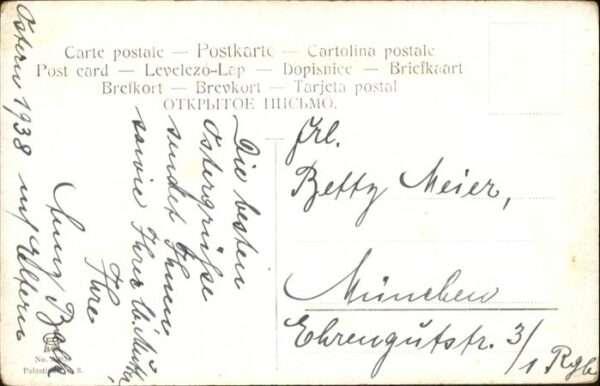 Carte postale — Postkarte — Cartolina postale
Post card — Levelező-Lap — Dopisnice — Briefkaart
Brefkort — Brevkort — Tarjeta postal
ОТКРЫТОЕ ПИСЬМО.
Ostern 1938
Die besten
Ostergrüße
sendet Ihnen
sowie Ihrer lb. Mutter,
Ihre
u. Eltern
Frl.
Betty Meier,
München
Ehrengutstr. 3/1 Rgb
No.